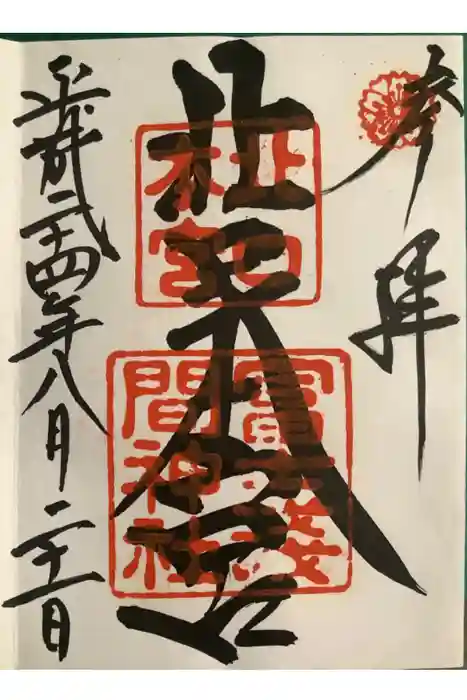 奉拝
北口本宮
北口
本宮
冨士淺
間神社
平成二十四年八月二十一日